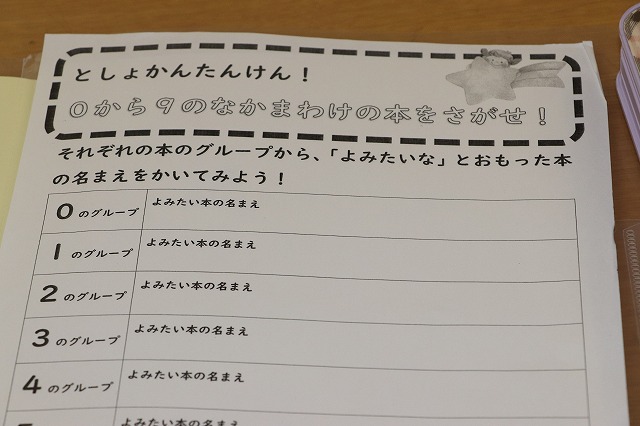 としょかんたんけん！
0から9のなかまわけの本をさがせ！
それぞれの本のグループから、「よみたいな」とおもった本
の名まえをかいてみよう！
0のグループ よみたい本の名まえ
1のグループ よみたい本の名まえ
2のグループ よみたい本の名まえ
3のグループ よみたい本の名まえ
4のグループ よみたい本の名まえ
よみたい本の名まえ